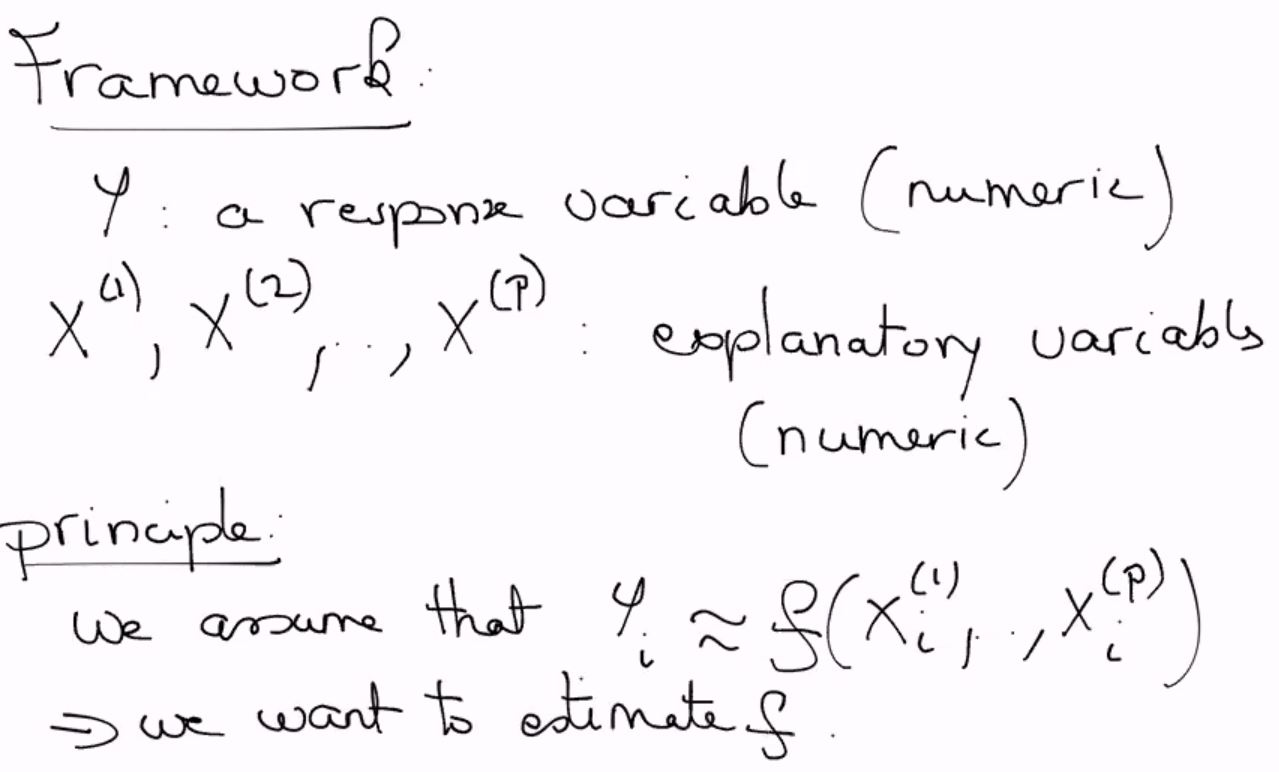 Framework:
Y : a response variable (numeric)
X^(1), X^(2), .., X^(p) : explanatory variables
(numeric)
principle:
we assume that Y_i ≈ f(X_i^(1), .., X_i^(p))
⇒ we want to estimate f.